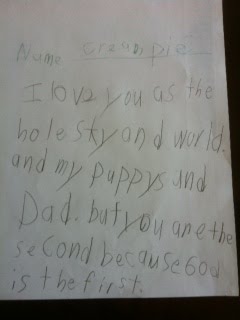 Name cream pie
I love you as the
hole sky and world.
and my puppys und
Dad. but you are the
second because God
is the first.